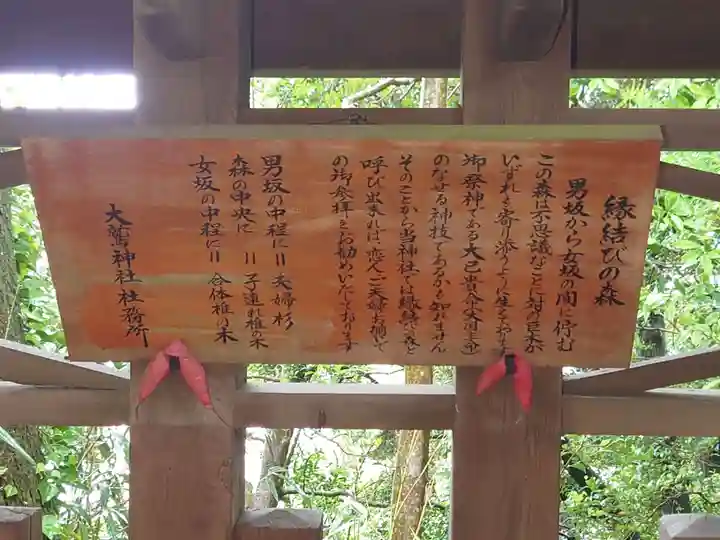 縁結びの森
男坂から女坂の間に佇む
この森は不思議なことに対の巨木が
いずれも寄り添うように生えており
御祭神である大己貴命(大国主命)
のなせる神技であるかも知れません
そのことから当神社では縁結びの森と
呼び慣れ、恋人、ご夫婦お揃いで
の御参拝をお勧めいたしております
男坂の中程に=夫婦杉
森の中央に=子連れ椎の木
女坂の中程に=合体椎の木
大鷲神社社務所